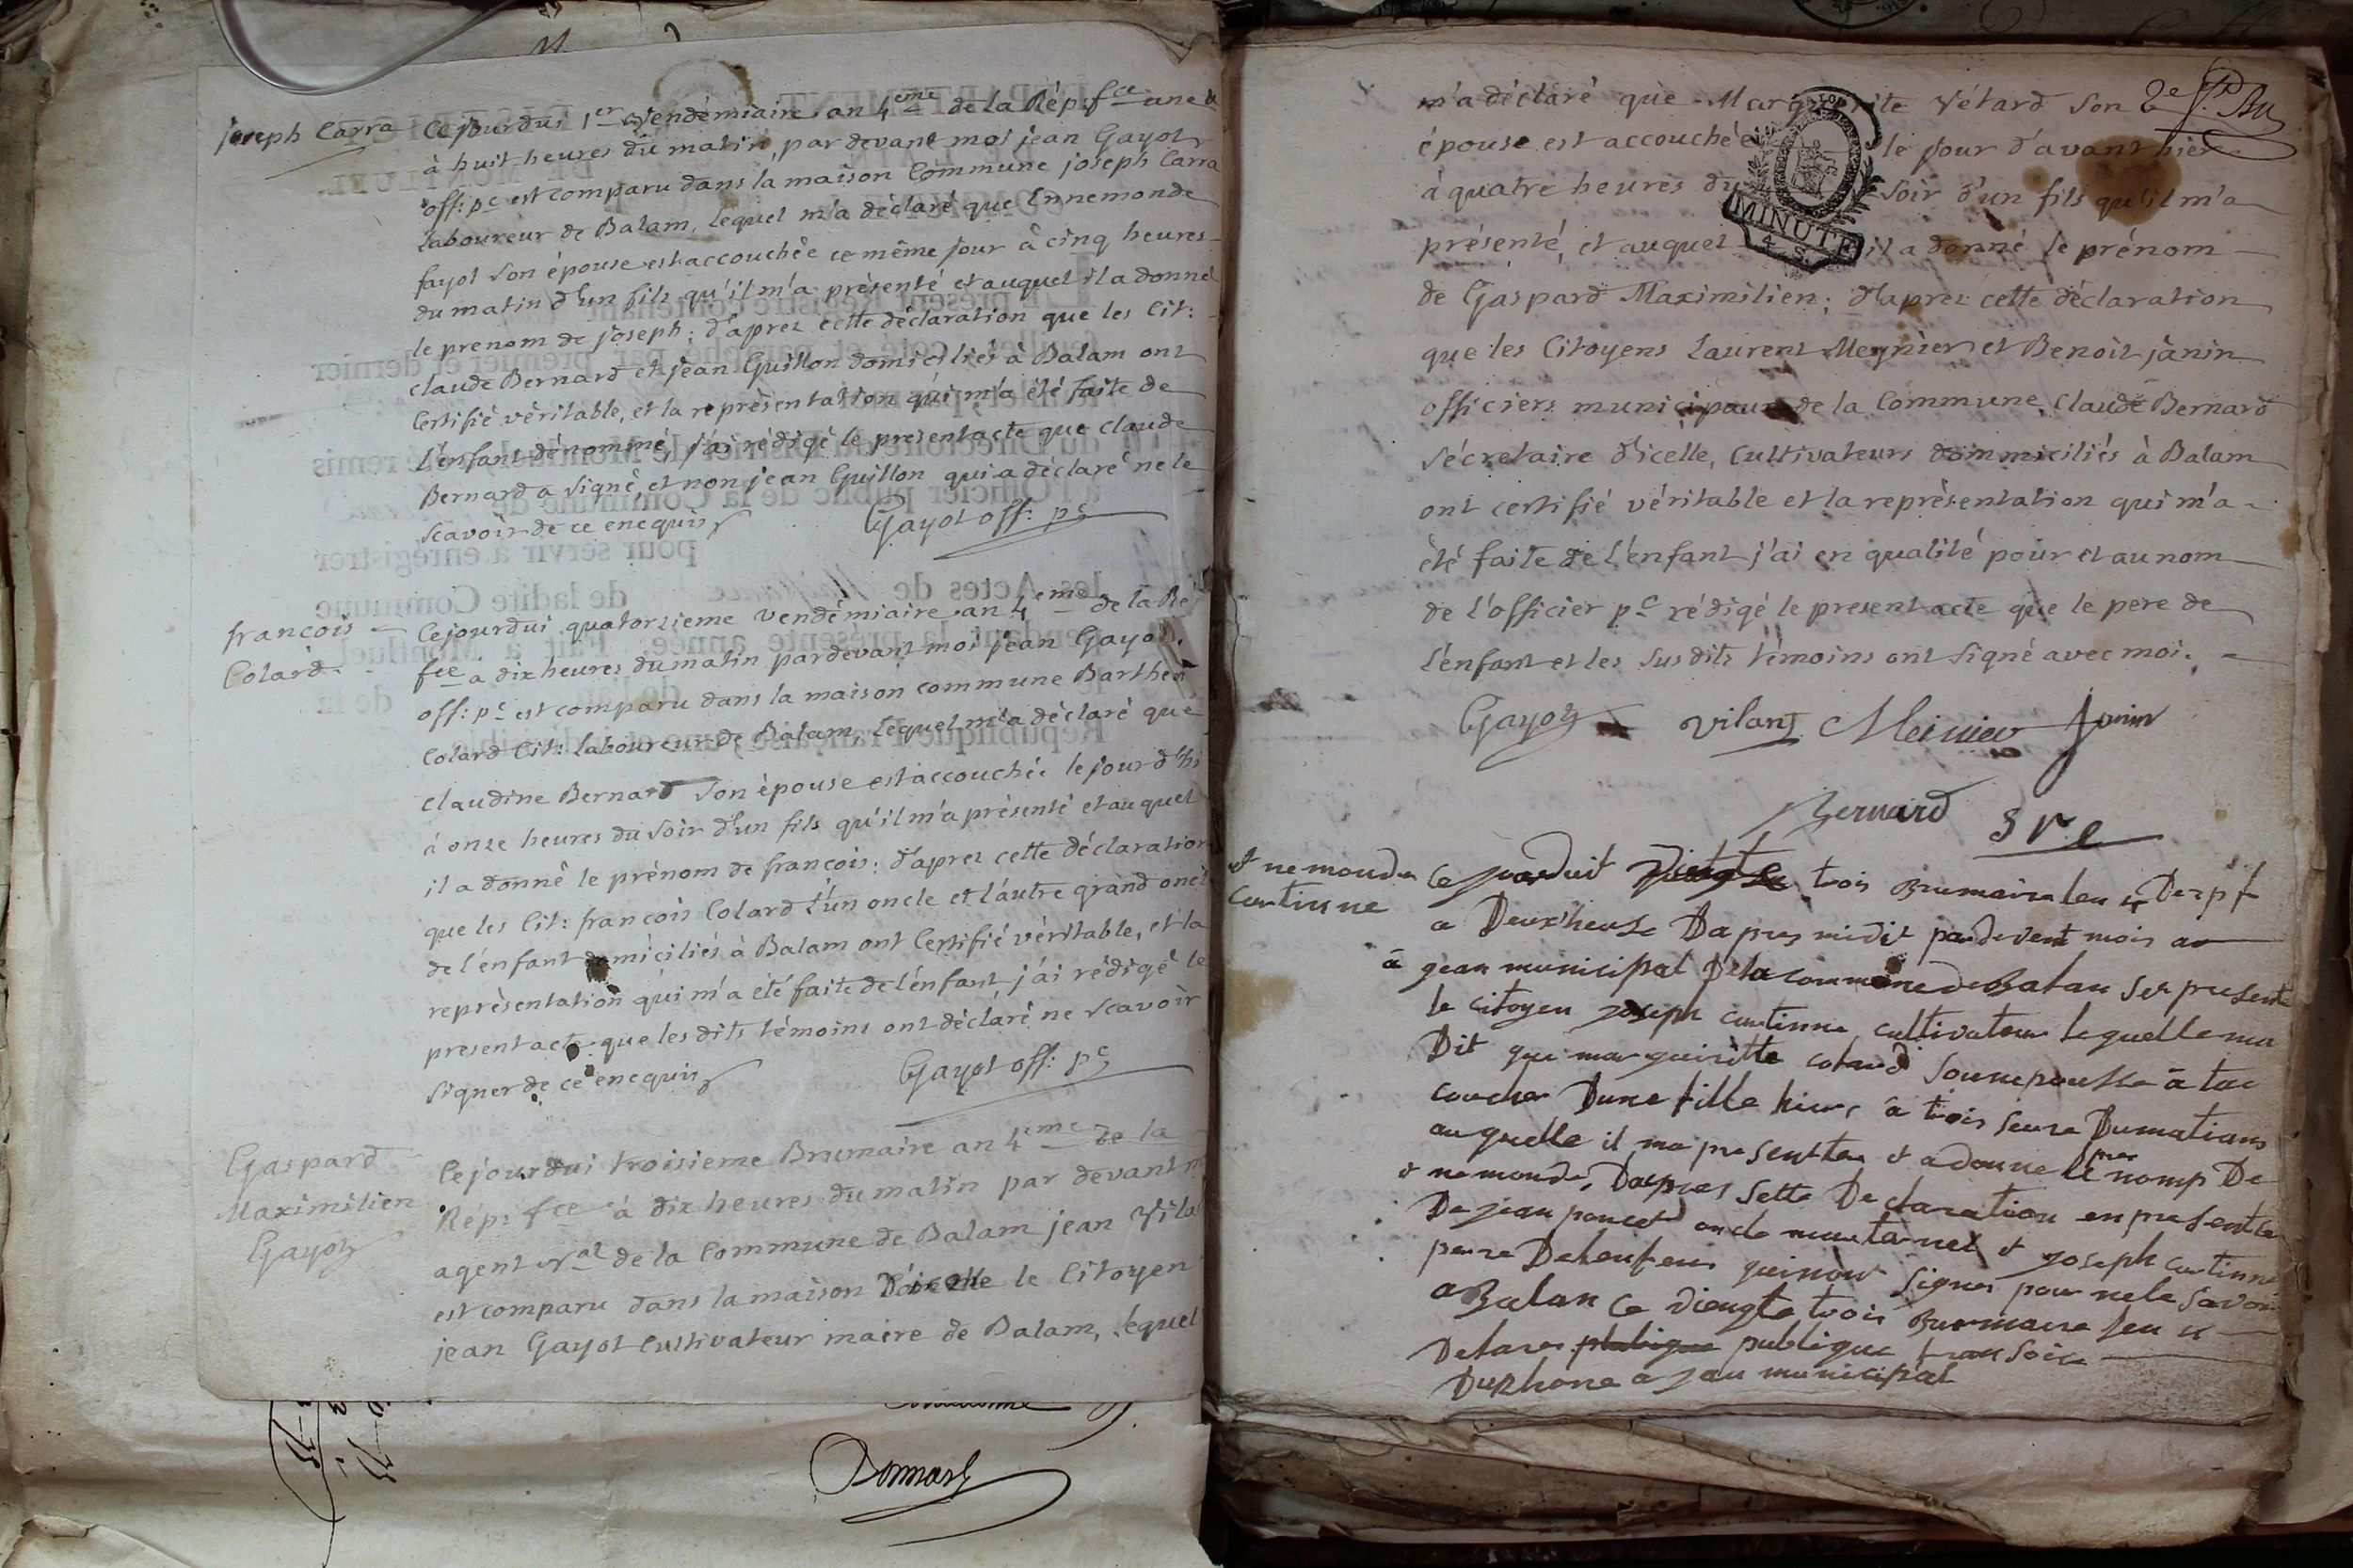 joseph Carra
Cejourdui 1er Vendémiaire an 4eme de la Rép: fce une &
à huit heures du matin, par devant moi jean Gayot
off: pc est comparu dans la maison Commune joseph Carra
Laboureur de Balam, lequel m'a déclaré que Ennemonde
fayol son épouse est accouchée ce même jour à cinq heures
du matin d'un fils qu'il m'a présenté et auquel il a donné
le prenom de joseph; d'aprez cette déclaration que les Cit:
claude Bernard et jean Guillon domiciliés à Balam ont
Certifié véritable, et la représentation qui m'a été faite de
L'enfant dénommé, j'ai rédigé le present acte que claude
Bernard a signé, et non jean Guillon qui a déclaré ne le
scavoir de ce enequis
Gayot off: pc
francois
Colard
Cejourdui quatorzieme vendémiaire an 4eme de la Ré
fce à dix heures du matin pardevant moi jean Gayot
off: pc est comparu dans la maison commune Barthe
Colard Cit: laboureur de Balam, lequel m'a déclaré que
claudine Bernard son épouse est accouchée le jour d'hi
à onze heures du soir d'un fils qu'il m'a présenté et auquel
il a donné le prénom de francois: d'aprez cette déclaration
que les Cit: francois Colard l'un oncle et l'autre grand oncl
de l'enfant domiciliés à Balam ont Certifié véritable, et la
représentation qui m'a été faite de l'enfant, j'ai rédigé le
present acte que les dits témoins ont déclaré ne scavoir
signer de ce enequis
Gayot off: pc
Gaspard
Maximilien
Gayot
Cejourdui troisieme Brumaire an 4eme de la
Rép: fce à dix heures du matin par devant m
agent nal de la Commune de Balam jean Vila
est comparu dans la maison d'icelle le Citoyen
jean Gayot Cultivateur maire de Balam, lequel
Donnard
m'a déclaré que Marguerite Vétard son
épouse est accouchée le jour d'avant hier
à quatre heures du soir d'un fils qu'il m'a
présenté, et auquel il a donné le prénom
MINUTE
4. S.
de Gaspard Maximilien; d'aprez cette déclaration
que les Citoyens Laurent Meynier et Benoit janin
officiers municipaux de la Commune, Claude Bernard
Sécretaire d'icelle, Cultivateurs dommiciliés à Balam
ont certifié véritable et la représentation qui m'a
été faite de l'enfant j'ai en qualité pour et au nom
de l'officier pc rédigé le present acte que le pere de
l'enfant et les susdits témoins ont signé avec moi.
Gayot vilant Meinier Janin
Bernard Sre
et nemonde
Curtinne
Ce jourduit trois Brumaire lan 4 De rp f
a Deux heuse Dapres midit pardevent mois a
a gean municipal De la commune de Balan ses presente
le citoyen joseph curtinne cultivateur lequelle ma
Dit que margueiritte colard sounepousse a tac
coucher Dune fille hier a trois seure Dumatians
auquelle il ma presentter et adonne le pre nomp De
et nemonde, Dapres sette Declaration en presentse
De jean poncet oncle maternel et joseph curtinne
perre Delenfens quinont signes pour nele savoir
a Balan ce viengte trois Brumaire lan 4
Delares publique fransoise
Duphone a jan municipal